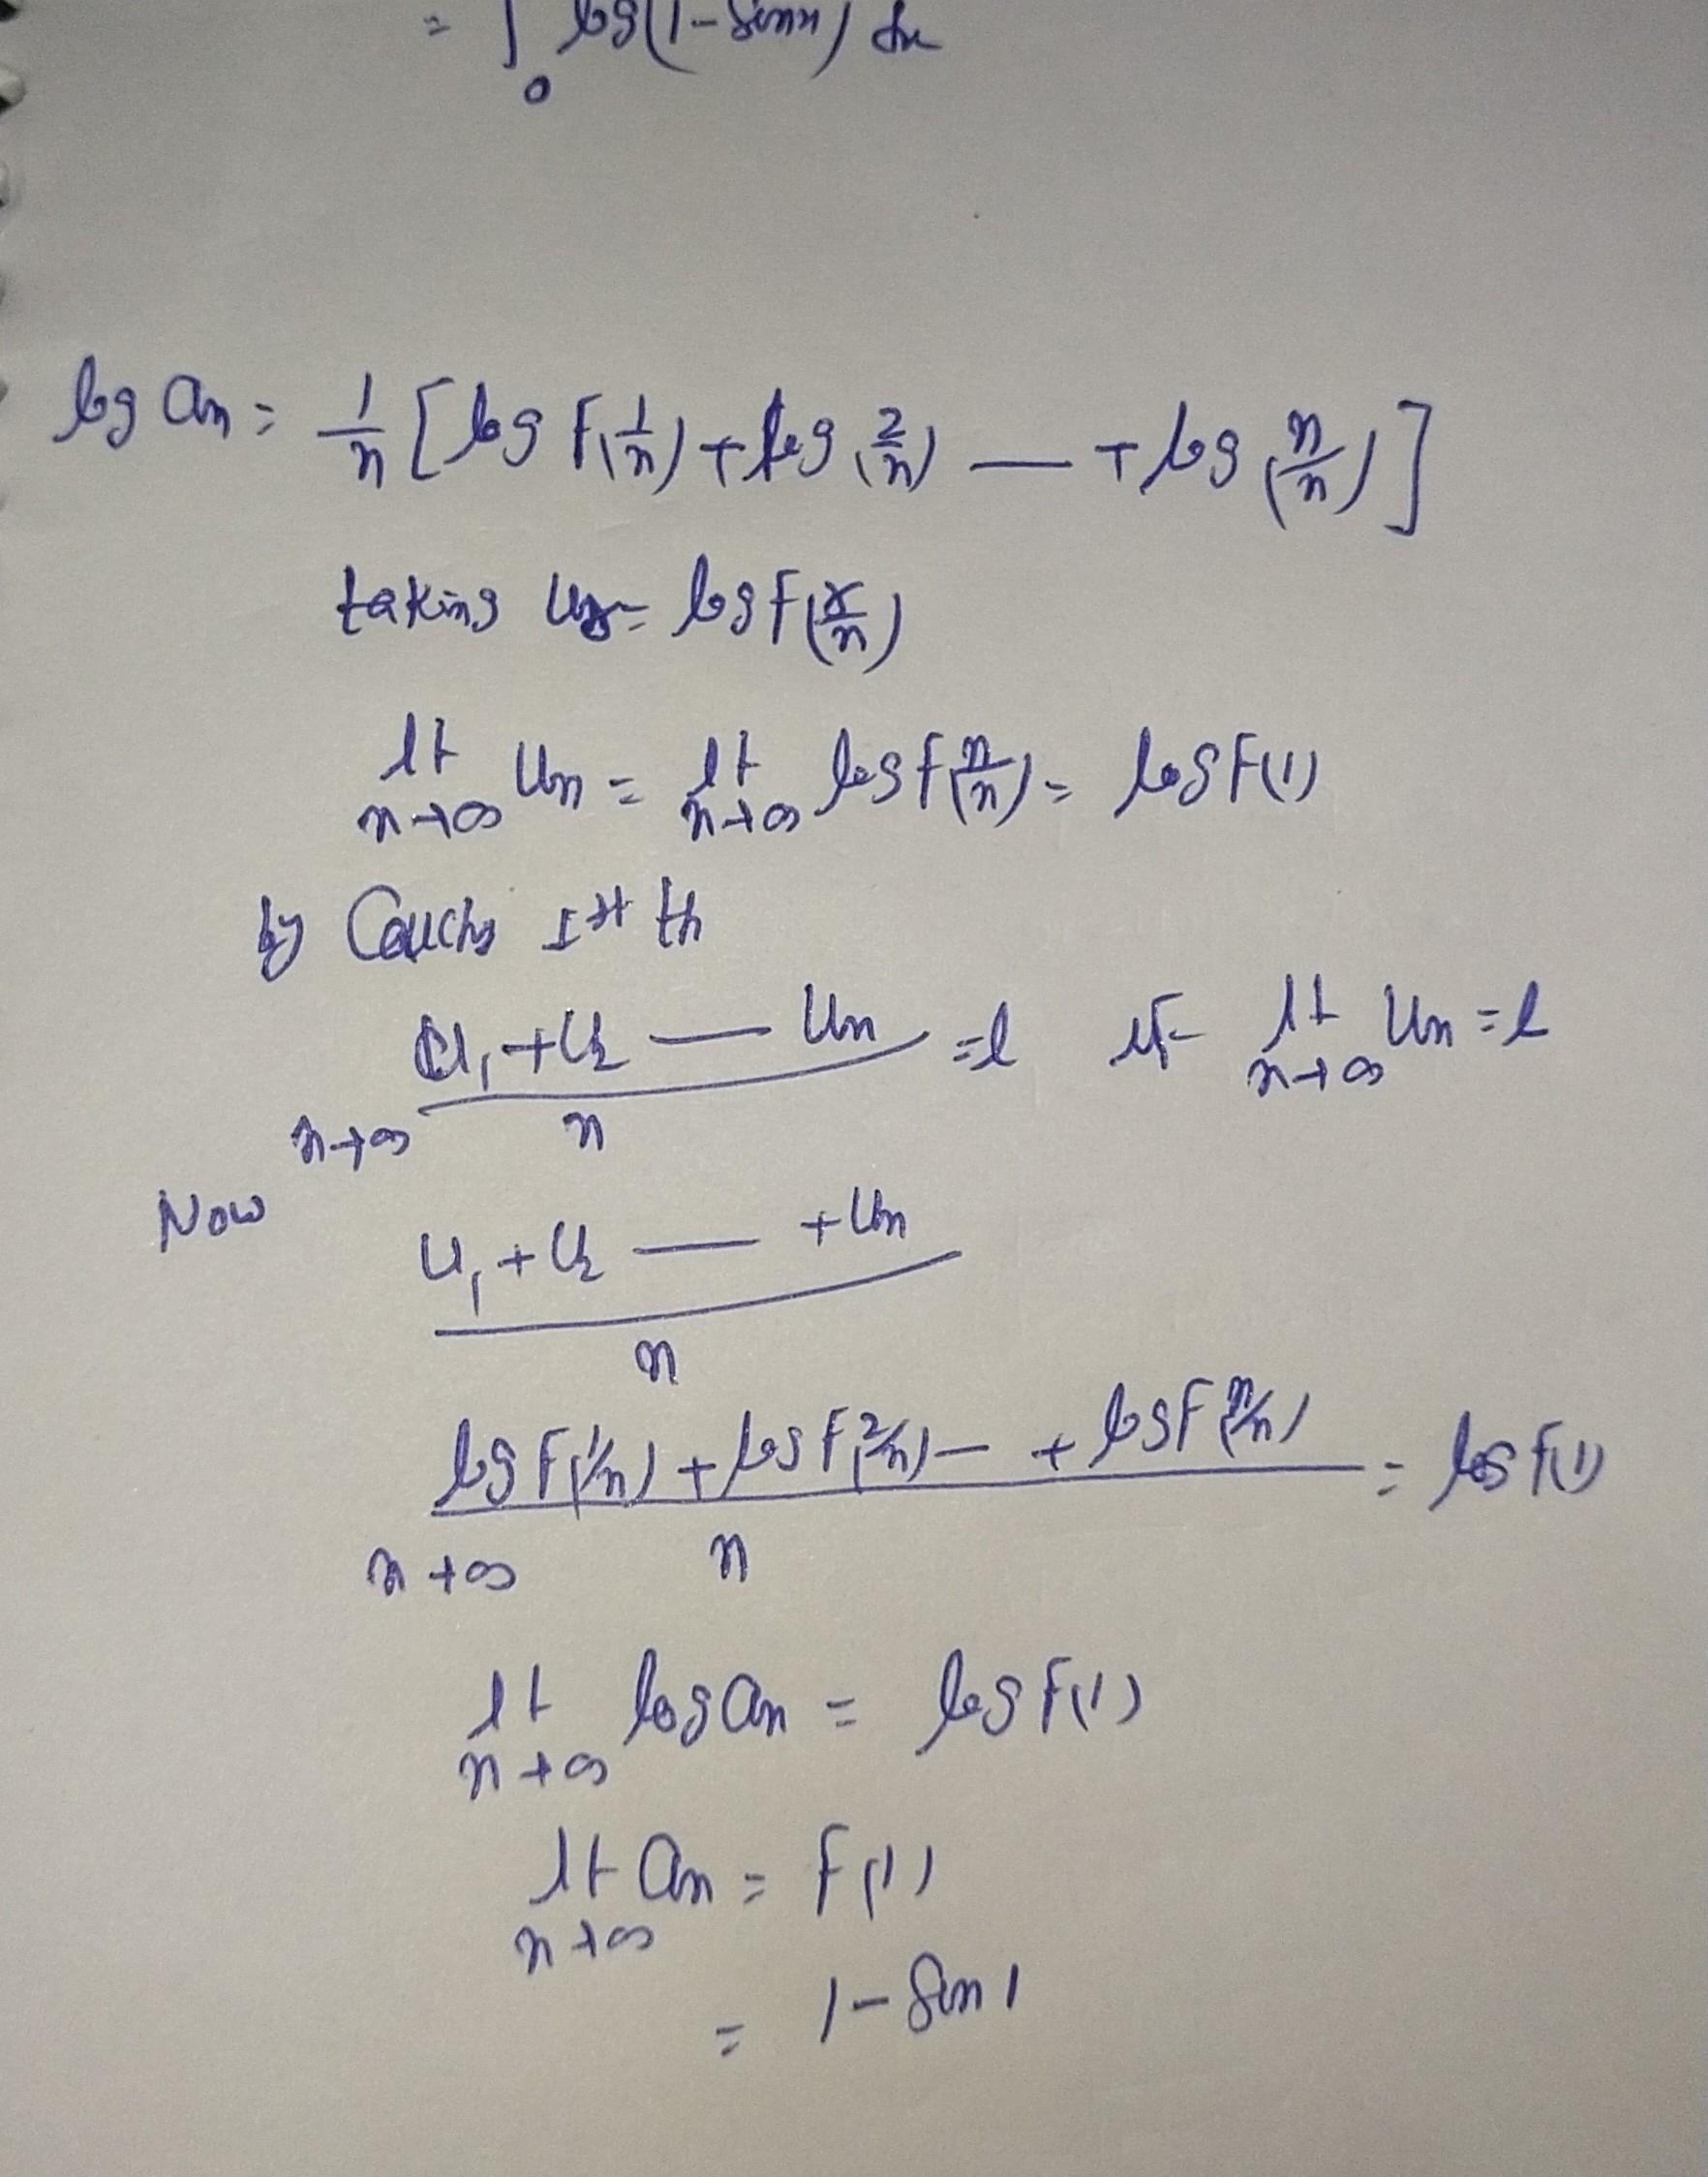 = ∫₀ log(1-sinx) dx
log an = 1/n [log f(1/n) + log (2/n) — + log (n/n)]
taking Ur = log f(r/n)
lt n→∞ Un = lt n→∞ log f(n/n) = log f(1)
by Cauchy Ist th
n→∞ U1+U2 — Un / n = l if lt n→∞ Un = l
Now
U1+U2 — +Un / n
n→∞ log f(1/n) + log f(2/n) — + log f(n/n) / n = log f(1)
lt n→∞ log an = log f(1)
lt n→∞ an = f(1)
= 1-Sin 1